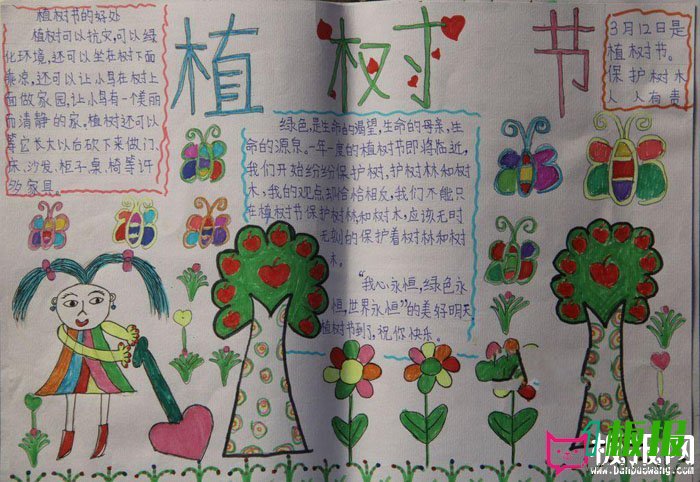 植树节
植树节的好处
植树可以抗灾,可以绿
化环境,还可以坐在树下面
乘凉,还可以让小鸟在树上
面做家园,让小鸟有一个美丽
而清静的家,植树还可以
等它长大以后砍下来做门、
床、沙发、柜子、桌、椅等许
多家具。
绿色,是生命的渴望,生命的母亲,生
命的源泉、一年一度的植树节即将临近,
我们开始纷纷保护树,护树林和树
木,我的观点却恰恰相反,我们不能只
在植树节保护树林和树木,应该无时
无刻的保护着树林和树
木。
“我心永恒,绿色永
恒,世界永恒”的美好明天,
植树节到了,祝你快乐。
3月12日是
植树节。
保护树木
人人有责
板报网
www.banbaowang.com